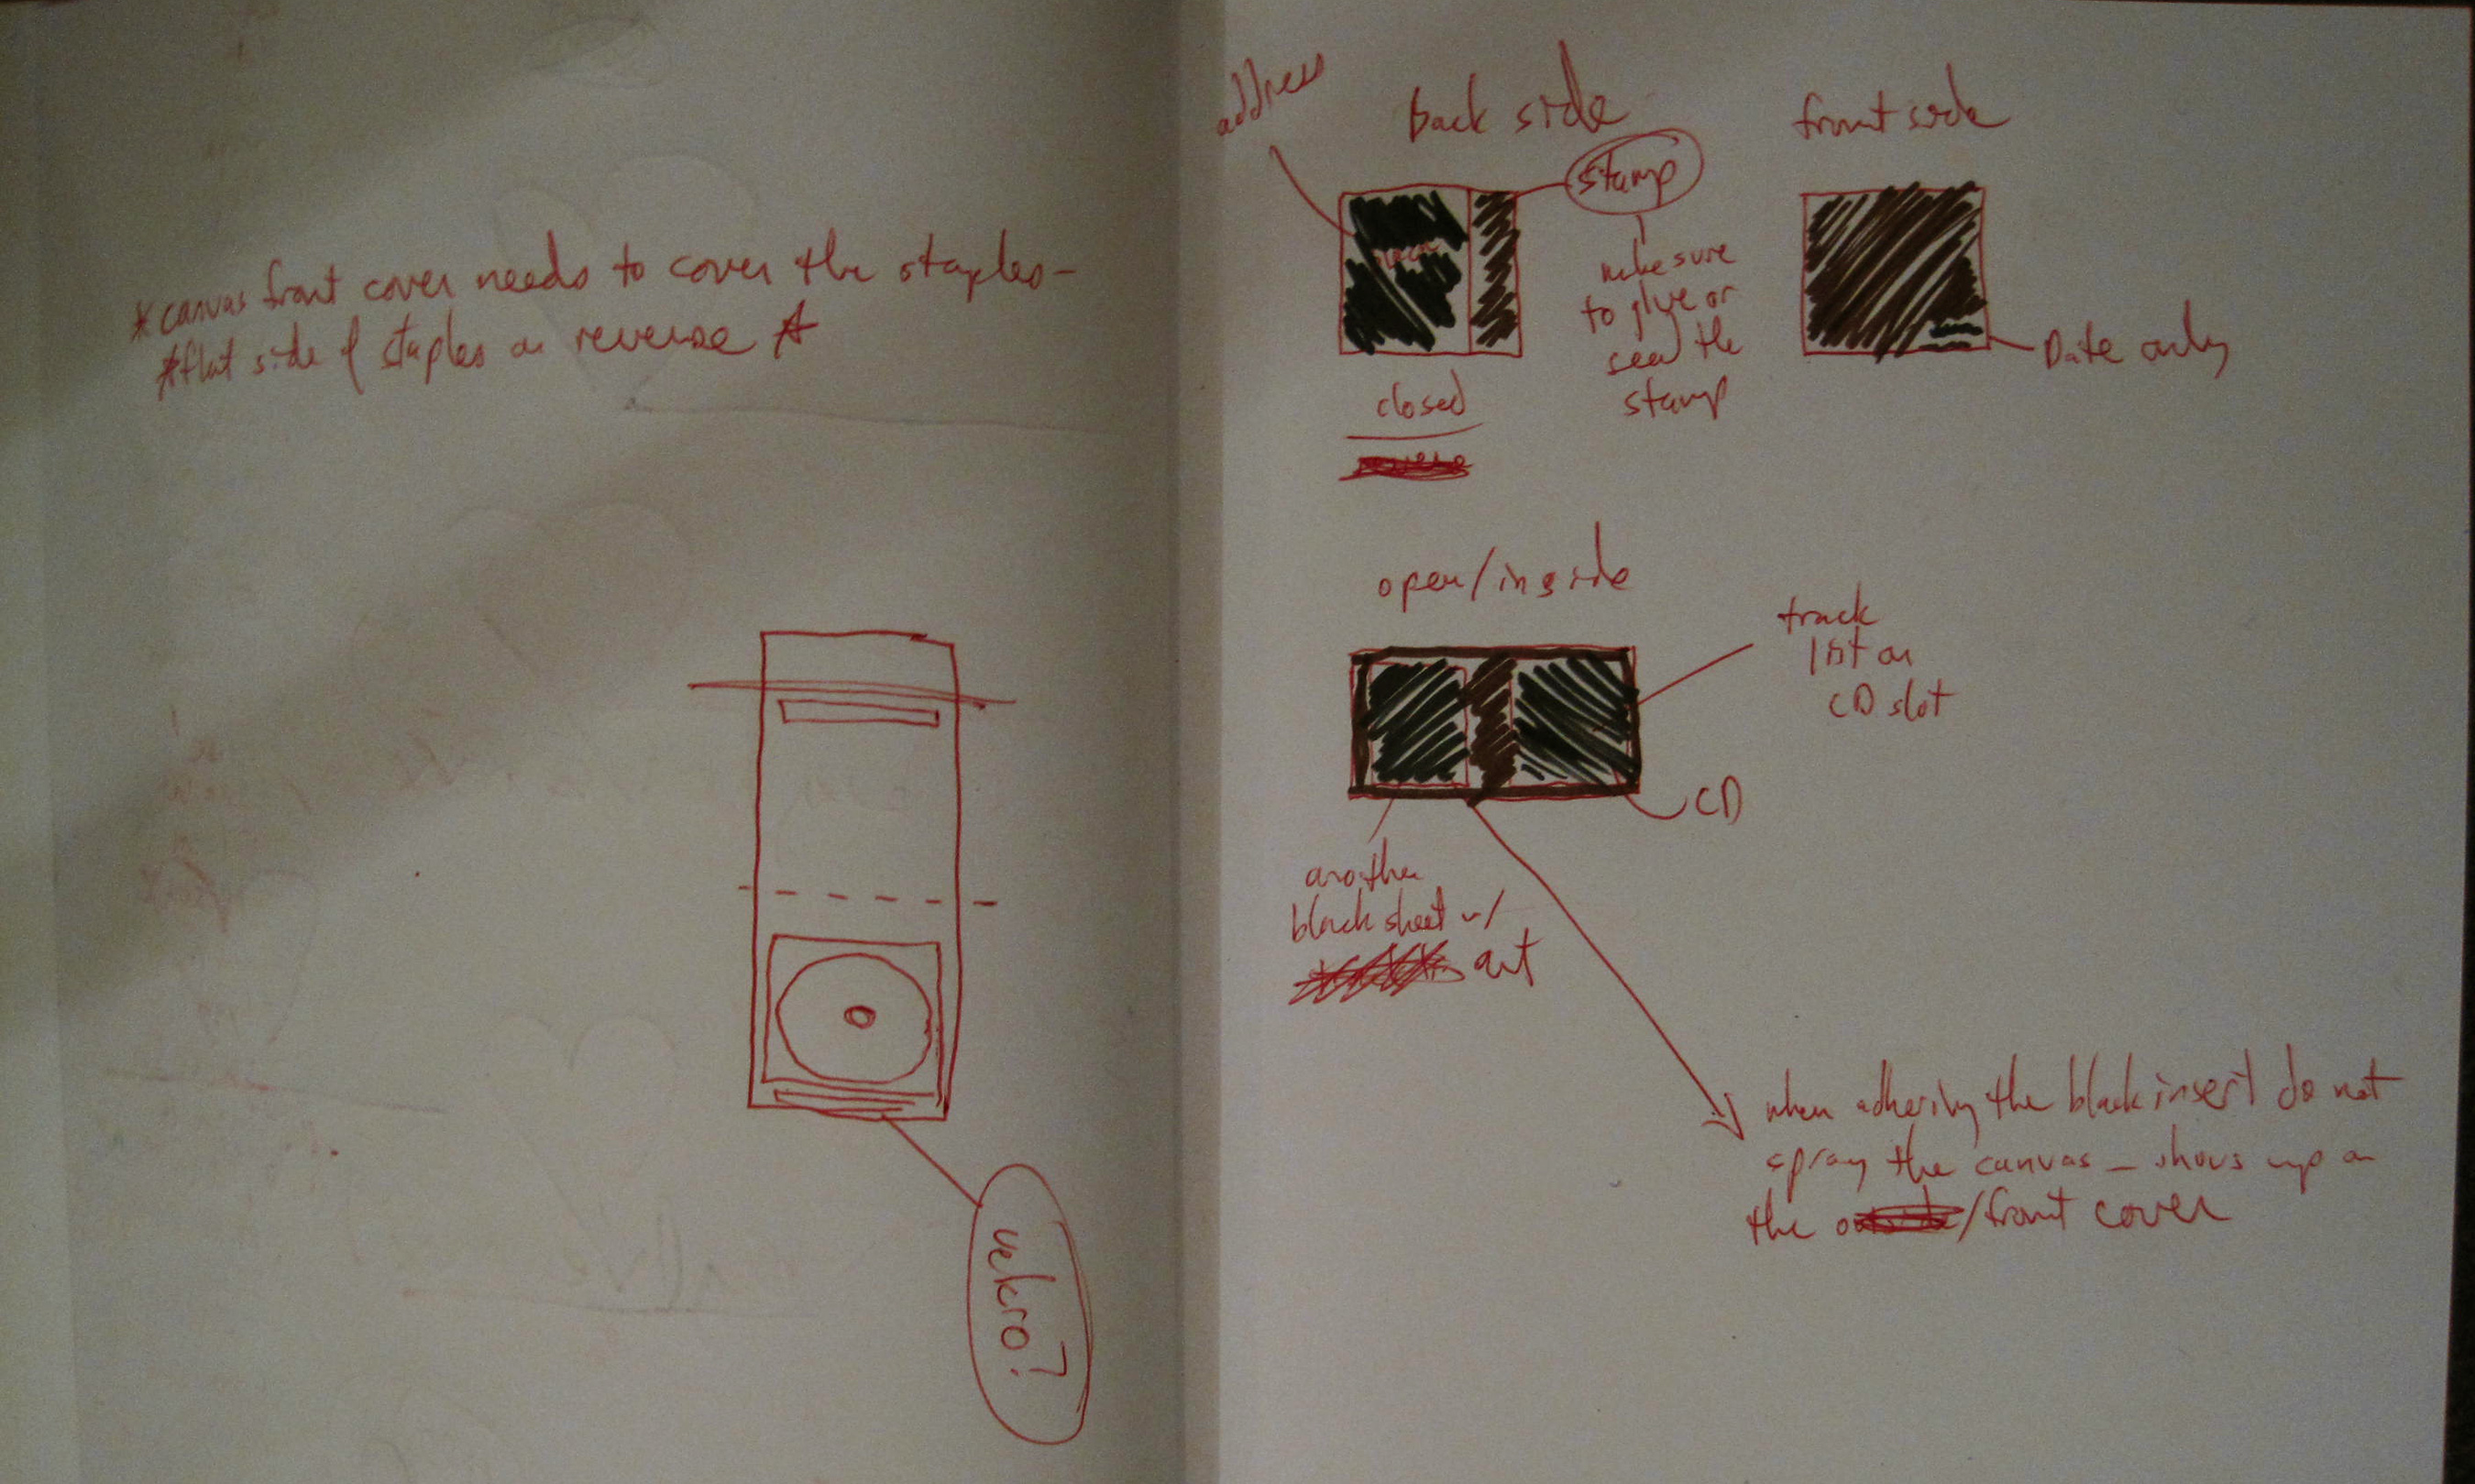 *canvas front cover needs to cover the staples-
*flat side of staples on reverse *
velcro?
address
back side
front side
stamp
make sure
to glue or
seal the
stamp
Date only
closed
open/inside
track
list on
CD slot
CD
another
black sheet w/
art
when adhering the black insert do not
spray the canvas - shows up on
the /front cover